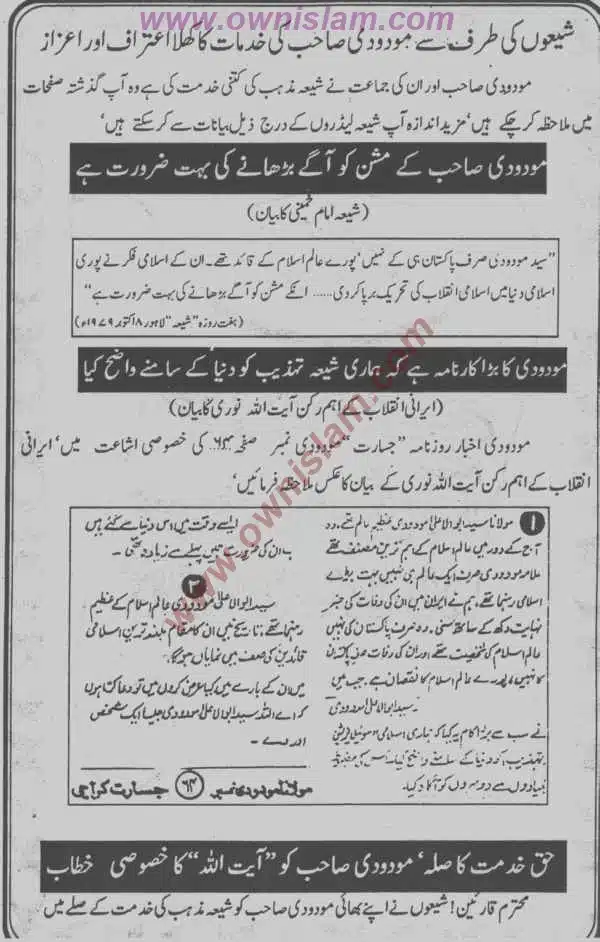 www.ownislam.com
شیعوں کی طرف سے مودودی صاحب کی خدمات کا کھلا اعتراف اور اعزاز
مودودی صاحب اور ان کی جماعت نے شیعہ مذہب کی کتنی خدمت کی ہے وہ آپ گذشتہ صفحات
میں ملاحظہ کر چکے ہیں' مزید اندازہ آپ شیعہ لیڈروں کے درج ذیل بیانات سے کر سکتے ہیں'
مودودی صاحب کے مشن کو آگے بڑھانے کی بہت ضرورت ہے
(شیعہ امام خمینی کا بیان)
"سید مودودی صرف پاکستان ہی کے نہیں' پورے عالم اسلام کے قائد تھے۔ ان کے اسلامی فکر نے پوری
اسلامی دنیا میں اسلامی انقلاب کی تحریک برپا کر دی ...... انکے مشن کو آگے بڑھانے کی بہت ضرورت ہے"
(ہفت روزہ "شیعہ" لاہور ۱۸ کتوبر ۱۹۷۹ء)
مودودی کا بڑا کارنامہ ہے کہ ہماری شیعہ تہذیب کو دنیا کے سامنے واضح کیا
(ایرانی انقلاب کے اہم رکن آیت اللہ نوری کا بیان)
مودودی اخبار روزنامہ "جسارت" مودودی نمبر صفحہ ۶۴ کی خصوصی اشاعت میں' ایرانی
انقلاب کے اہم رکن آیت اللہ نوری کے بیان کا عکس ملاحظہ فرمائیں'
۱ مولانا سید ابوالاعلیٰ مودودی عظیم عالم تھے، وہ
آج کے دور میں عالم اسلام کے اہم ترین مصنف تھے
علامہ مودودی صرف ایک عالم ہی نہیں بہت بڑے
اسلامی رہنما تھے، ہم نے ایران میں ان کی وفات کی خبر
نہایت دکھ کے ساتھ سنی۔ وہ صرف پاکستان کی نہیں
عالم اسلام کی شخصیت تھے اور ان کی وفات صرف پاکستان
کا نہیں، پورے عالم اسلام کا نقصان ہے۔
سید ابوالاعلیٰ مودودی
نے سب سے بڑا کام یہ کیا کہ ہماری اسلامی
تہذیب کو دنیا کے سامنے واضح کیا، اس کی
بنیادوں سے دوسروں کو آگاہ کیا۔
ایسے وقت میں اس دنیا سے گئے ہیں
جب ان کی ضرورت ہمیں پہلے سے زیادہ تھی۔
۲
سید ابوالاعلیٰ مودودی عالم اسلام کے عظیم
رہنما تھے، تاریخ میں ان کا مقام بلند ترین اسلامی
قائدین کی صف میں نمایاں ہوگا۔
میں ان کے بارے میں کیا عرض کروں میں تو دعا کرتا ہوں
کہ اے اللہ سید ابوالاعلیٰ مودودی جیسا ایک شخص
اور دے۔
مولانا مودودی نمبر ۶۴ جسارت کراچی
حق خدمت کا صلہ' مودودی صاحب کو "آیت اللہ" کا خصوصی خطاب
محترم قارئین! شیعوں نے اپنے بھائی مودودی صاحب کو شیعہ مذہب کی خدمت کے صلے میں
www.ownislam.com